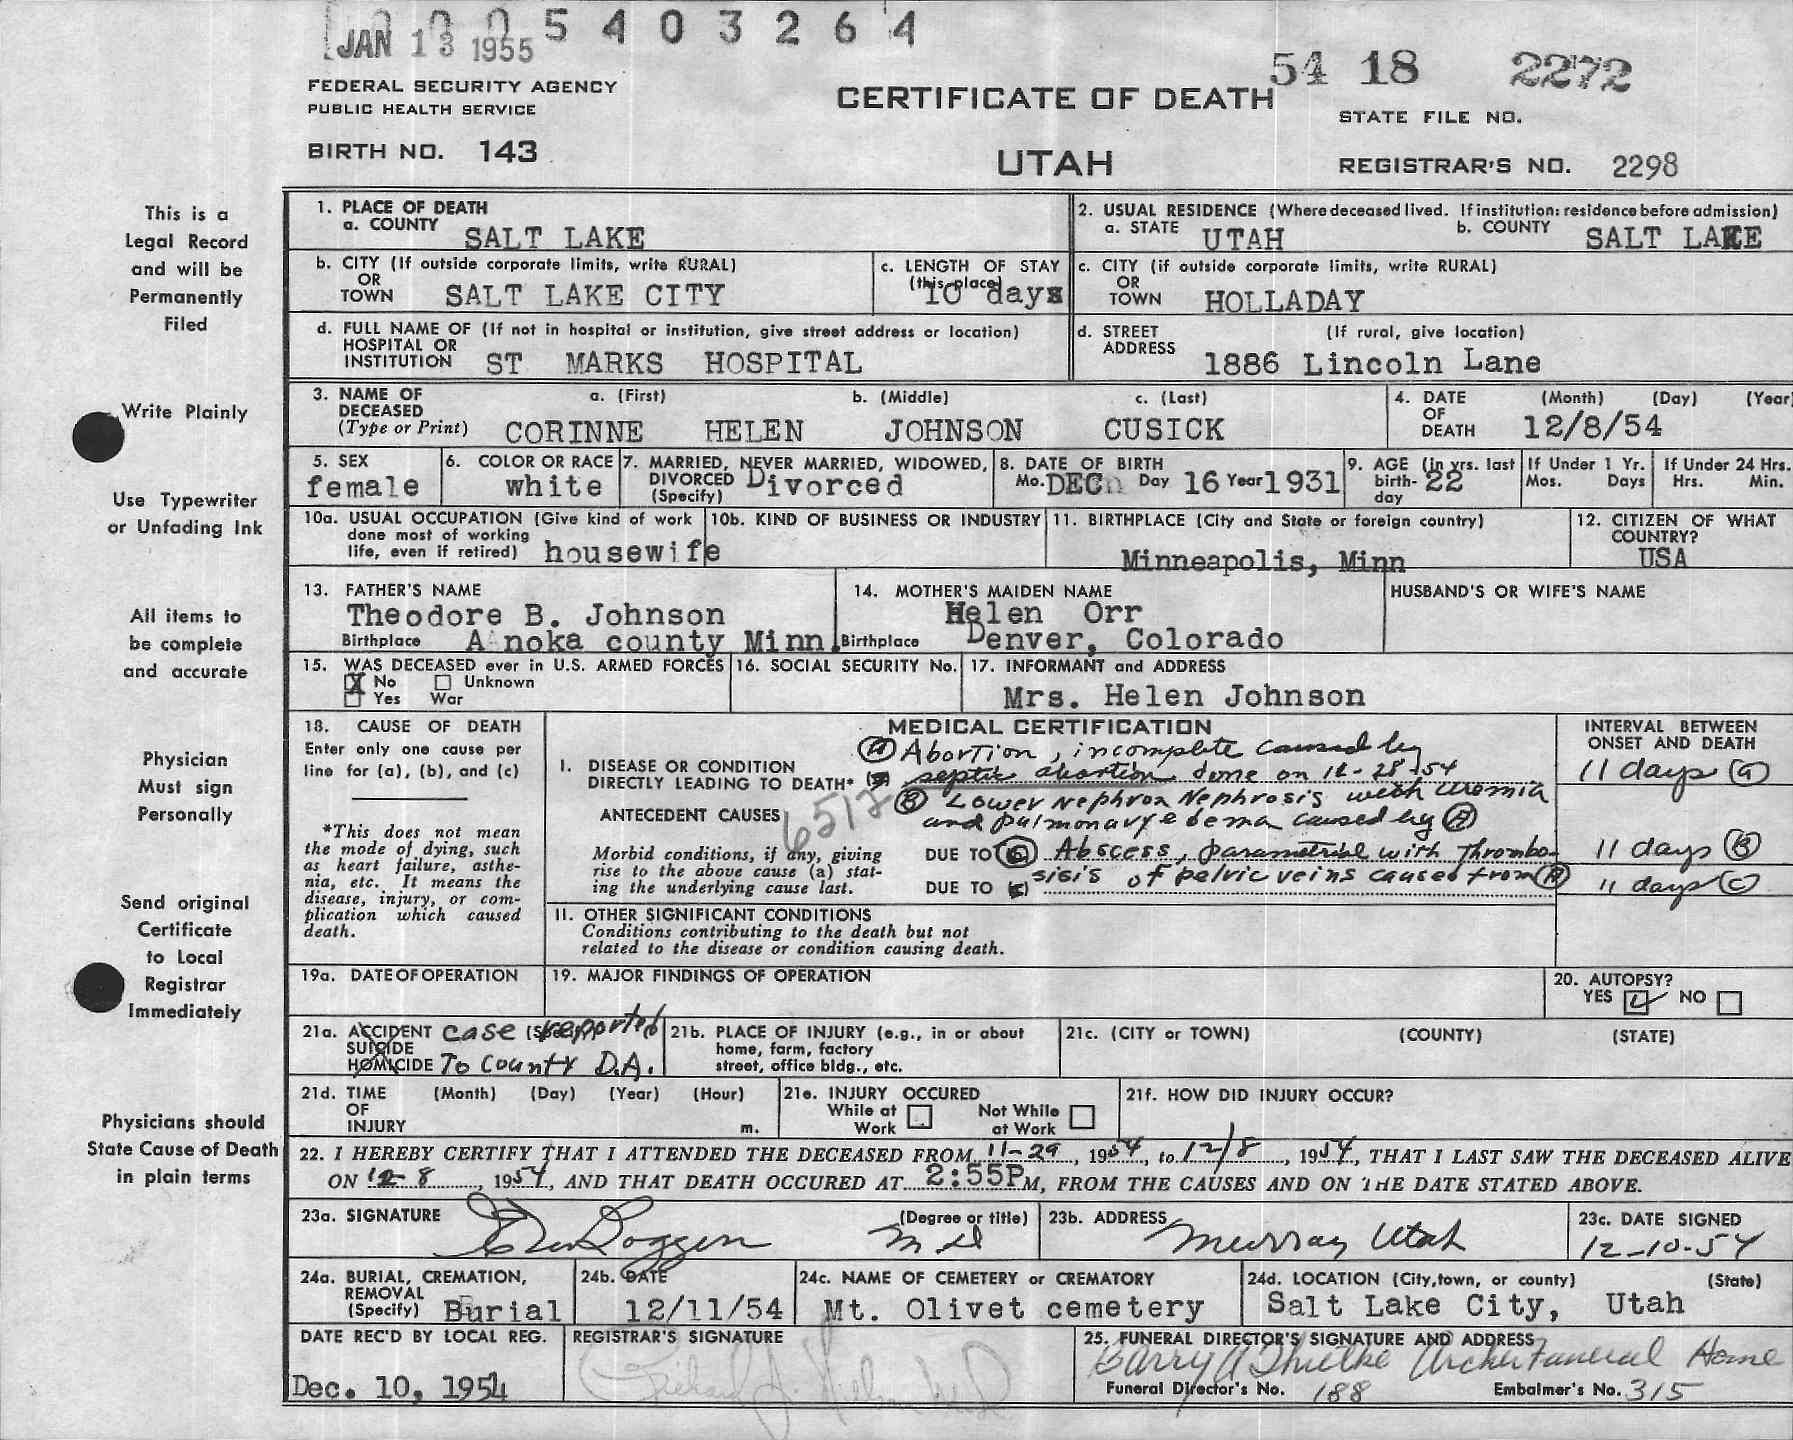 0 0 0 5 4 0 3 2 6 4
JAN 13 1955
54 18 2272
FEDERAL SECURITY AGENCY
PUBLIC HEALTH SERVICE
CERTIFICATE OF DEATH
STATE FILE NO.
BIRTH NO. 143
UTAH
REGISTRAR'S NO. 2298
This is a
Legal Record
and will be
Permanently
Filed
Write Plainly
Use Typewriter
or Unfading Ink
All items to
be complete
and accurate
Physician
Must sign
Personally
Send original
Certificate
to Local
Registrar
Immediately
Physicians should
State Cause of Death
in plain terms
1. PLACE OF DEATH
a. COUNTY SALT LAKE
2. USUAL RESIDENCE (Where deceased lived. If institution: residence before admission)
a. STATE UTAH b. COUNTY SALT LAKE
b. CITY (If outside corporate limits, write RURAL)
OR
TOWN SALT LAKE CITY
c. LENGTH OF STAY
(this place)
10 days
c. CITY (if outside corporate limits, write RURAL)
OR
TOWN HOLLADAY
d. FULL NAME OF (If not in hospital or institution, give street address or location)
HOSPITAL OR
INSTITUTION ST MARKS HOSPITAL
d. STREET (If rural, give location)
ADDRESS 1886 Lincoln Lane
3. NAME OF a. (First) b. (Middle) c. (Last)
DECEASED
(Type or Print) CORINNE HELEN JOHNSON CUSICK
4. DATE (Month) (Day) (Year)
OF
DEATH 12/8/54
5. SEX
female
6. COLOR OR RACE
white
7. MARRIED, NEVER MARRIED, WIDOWED,
DIVORCED Divorced
(Specify)
8. DATE OF BIRTH
Mo. DEC Day 16 Year 1931
9. AGE (in yrs. last
birth- 22
day
If Under 1 Yr.
Mos. Days
If Under 24 Hrs.
Hrs. Min.
10a. USUAL OCCUPATION (Give kind of work
done most of working
life, even if retired) housewife
10b. KIND OF BUSINESS OR INDUSTRY
11. BIRTHPLACE (City and State or foreign country)
Minneapolis, Minn
12. CITIZEN OF WHAT
COUNTRY?
USA
13. FATHER'S NAME
Theodore B. Johnson
Birthplace Anoka county Minn.
14. MOTHER'S MAIDEN NAME
Helen Orr
Birthplace Denver, Colorado
HUSBAND'S OR WIFE'S NAME
15. WAS DECEASED ever in U.S. ARMED FORCES
X No Unknown
Yes War
16. SOCIAL SECURITY No.
17. INFORMANT and ADDRESS
Mrs. Helen Johnson
18. CAUSE OF DEATH
Enter only one cause per
line for (a), (b), and (c)
*This does not mean
the mode of dying, such
as heart failure, asthe-
nia, etc. It means the
disease, injury, or com-
plication which caused
death.
MEDICAL CERTIFICATION
INTERVAL BETWEEN
ONSET AND DEATH
I. DISEASE OR CONDITION
DIRECTLY LEADING TO DEATH*
(A) Abortion, incomplete caused by
septic abortion done on 12-28-54
11 days (a)
ANTECEDENT CAUSES
6512
(B) Lower Nephron Nephrosis with uremia
and pulmonary edema caused by (A)
Morbid conditions, if any, giving
rise to the above cause (a) stat-
ing the underlying cause last.
DUE TO (C) Abscess, parametrial with Thrombo-
11 days (B)
DUE TO (c) sisis of pelvic veins caused from (A)
11 days (C)
II. OTHER SIGNIFICANT CONDITIONS
Conditions contributing to the death but not
related to the disease or condition causing death.
19a. DATE OF OPERATION
19. MAJOR FINDINGS OF OPERATION
20. AUTOPSY?
YES NO
21a. ACCIDENT (Specify)
SUICIDE
HOMICIDE
case reported
To County D.A.
21b. PLACE OF INJURY (e.g., in or about
home, farm, factory
street, office bldg., etc.
21c. (CITY or TOWN) (COUNTY) (STATE)
21d. TIME (Month) (Day) (Year) (Hour)
OF
INJURY m.
21e. INJURY OCCURED
While at Not While
Work at Work
21f. HOW DID INJURY OCCUR?
22. I HEREBY CERTIFY THAT I ATTENDED THE DECEASED FROM 11-29, 1954, to 12/8, 1954, THAT I LAST SAW THE DECEASED ALIVE
ON 12-8, 1954, AND THAT DEATH OCCURED AT 2:55P M, FROM THE CAUSES AND ON THE DATE STATED ABOVE.
23a. SIGNATURE (Degree or title)
MD
23b. ADDRESS
Murray Utah
23c. DATE SIGNED
12-10-54
24a. BURIAL, CREMATION,
REMOVAL
(Specify) Burial
24b. DATE
12/11/54
24c. NAME OF CEMETERY or CREMATORY
Mt. Olivet cemetery
24d. LOCATION (City, town, or county) (State)
Salt Lake City, Utah
DATE REC'D BY LOCAL REG.
Dec. 10, 1954
REGISTRAR'S SIGNATURE
25. FUNERAL DIRECTOR'S SIGNATURE AND ADDRESS
Archer Funeral Home
Funeral Director's No. 188 Embalmer's No. 315